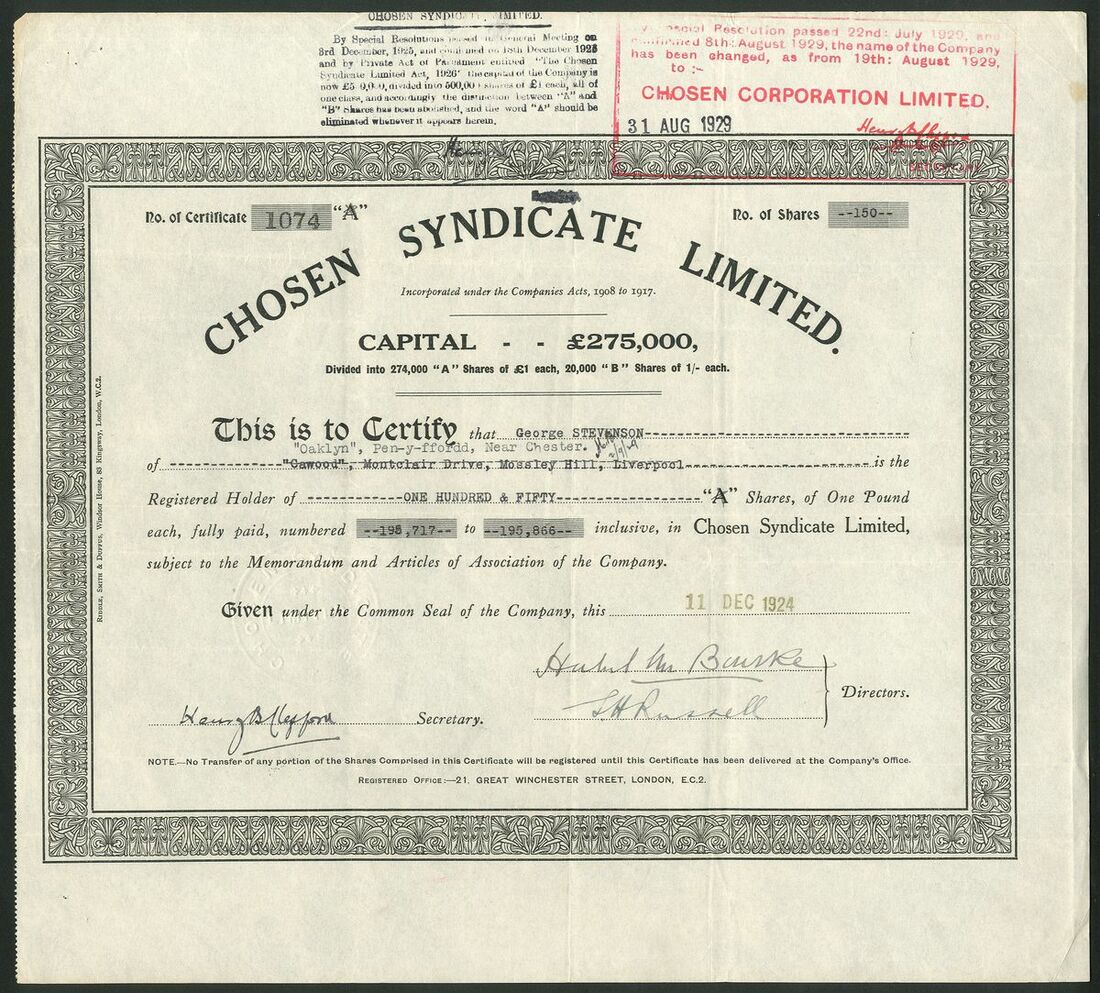 CHOSEN SYNDICATE LIMITED.
By Special Resolutions passed in General Meeting on
3rd December, 1925, and confirmed on 18th December 1925
and by Private Act of Parliament entitled "The Chosen
Syndicate Limited Act, 1926" the capital of the Company is
now divided into 500,000 shares of £1 each, all of
one class, and accordingly the distinction between "A" and
"B" Shares has been abolished, and the word "A" should be
eliminated whenever it appears herein.
By Special Resolution passed 22nd: July 1929, and
confirmed 8th: August 1929, the name of the Company
has been changed, as from 19th: August 1929,
to :-
CHOSEN CORPORATION LIMITED.
31 AUG 1929
SECRETARY
No. of Certificate 1074 "A"
No. of Shares --150--
CHOSEN SYNDICATE LIMITED.
Incorporated under the Companies Acts, 1908 to 1917.
CAPITAL - - £275,000,
Divided into 274,000 "A" Shares of £1 each, 20,000 "B" Shares of 1/- each.
This is to Certify that George STEVENSON
"Oaklyn", Pen-y-ffordd, Near Chester.
of "Cawood", Montclair Drive, Mossley Hill, Liverpool is the
Registered Holder of ONE HUNDRED & FIFTY "A" Shares, of One Pound
each, fully paid, numbered --195,717-- to --195,866-- inclusive, in Chosen Syndicate Limited,
subject to the Memorandum and Articles of Association of the Company.
Given under the Common Seal of the Company, this 11 DEC 1924
Bourke
T H Russell
Directors.
Henry B Secretary.
NOTE.—No Transfer of any portion of the Shares Comprised in this Certificate will be registered until this Certificate has been delivered at the Company's Office.
REGISTERED OFFICE:—21, GREAT WINCHESTER STREET, LONDON, E.C.2.
RIDDLE, SMITH & DUFFUS, Windsor House, 83 Kingsway, London, W.C.2.